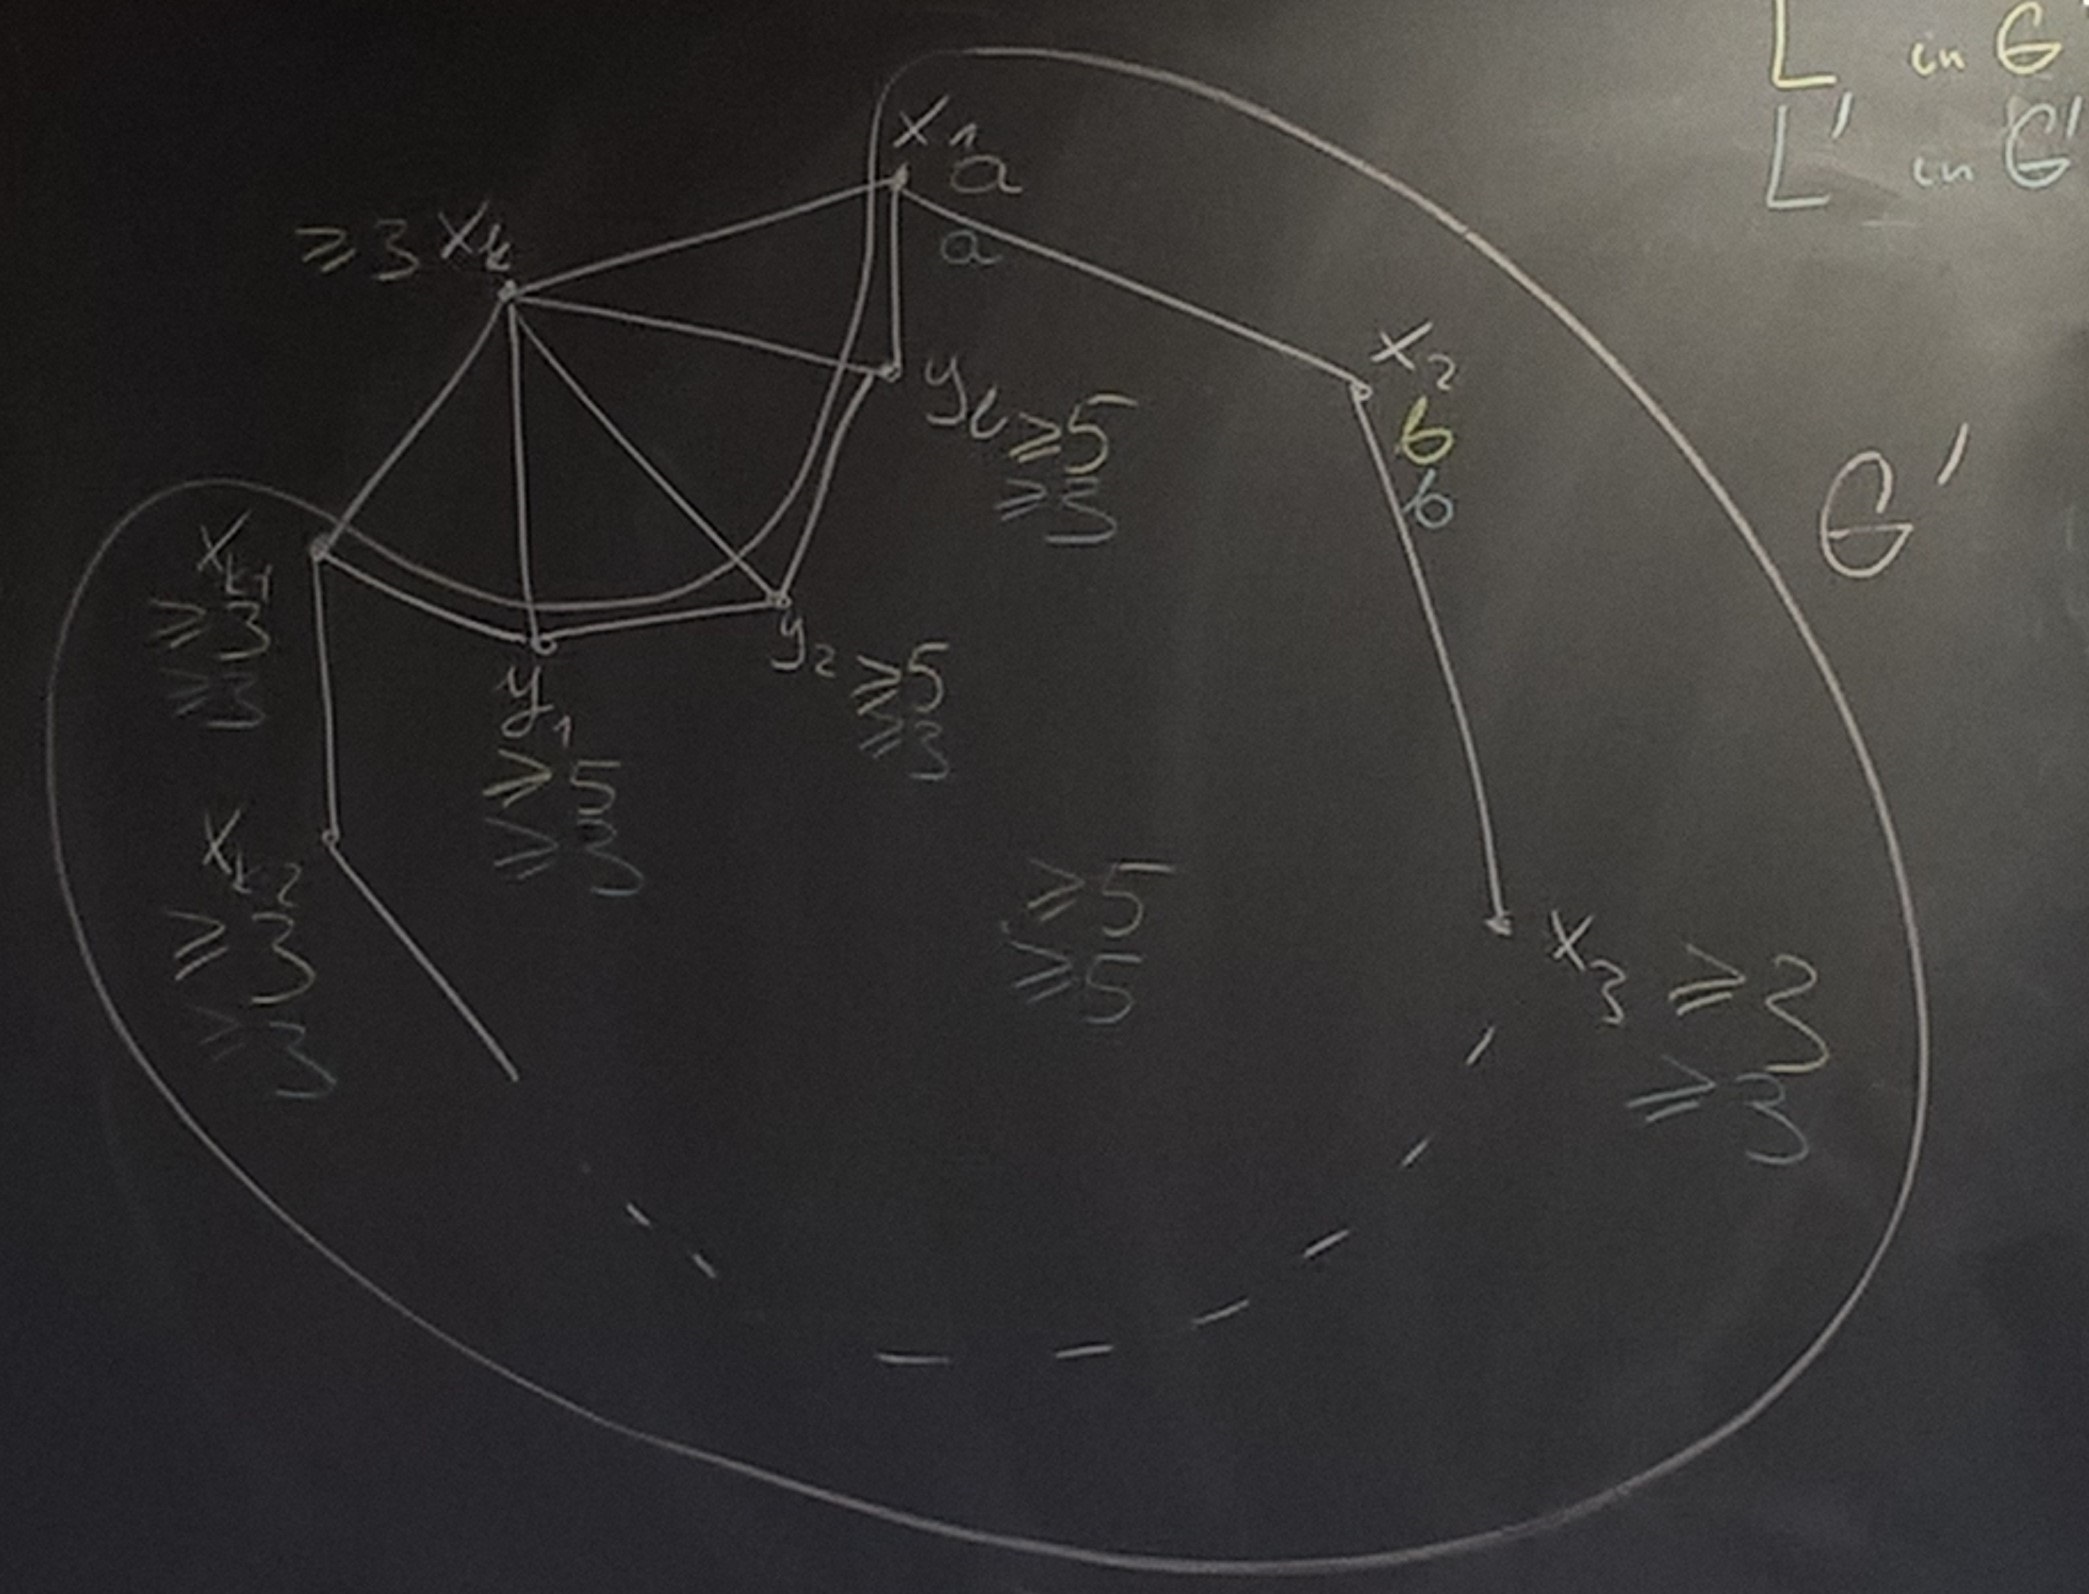 L in G
L' in G'
x₁ a
a
≥3 x_k
x₂
b
b
y_ℓ ≥5
≥3
G'
x_{k-1}
≥3
≥3
y₁
≥5
≥3
y₂ ≥5
≥3
x_{k-2}
≥3
≥3
≥5
≥5
x₃ ≥3
≥3